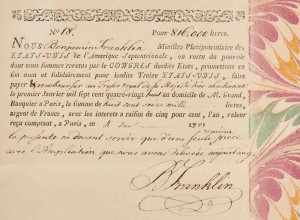 No. 18. Pour 816,000 livres.
NOUS Benjamin Franklin Ministre Plénipotentiaire des
ETATS-UNIS de l'Amérique Septentrionale, en vertu du pouvoir
dont nous sommes revetu par le CONGRÈS desdits Etats, promettons en
son nom et solidairement pour lesdits Treize ETATS-UNIS, faire
payer & rembourser au Trésor royal de sa Majesté
mil sept cent quatre-vingt-huit au domicile de M. Grand,
Banquier à Paris, la somme de huit cent seize mille livres,
argent de France, avec les interets a raison de cinq pour cent, l'an, valeur
reçu comptant, a Paris, ce
la présente ne devant servir que d'une seule pièce
avec l'Ampliation que nous avons délivrée aujourd'huy
B Franklin